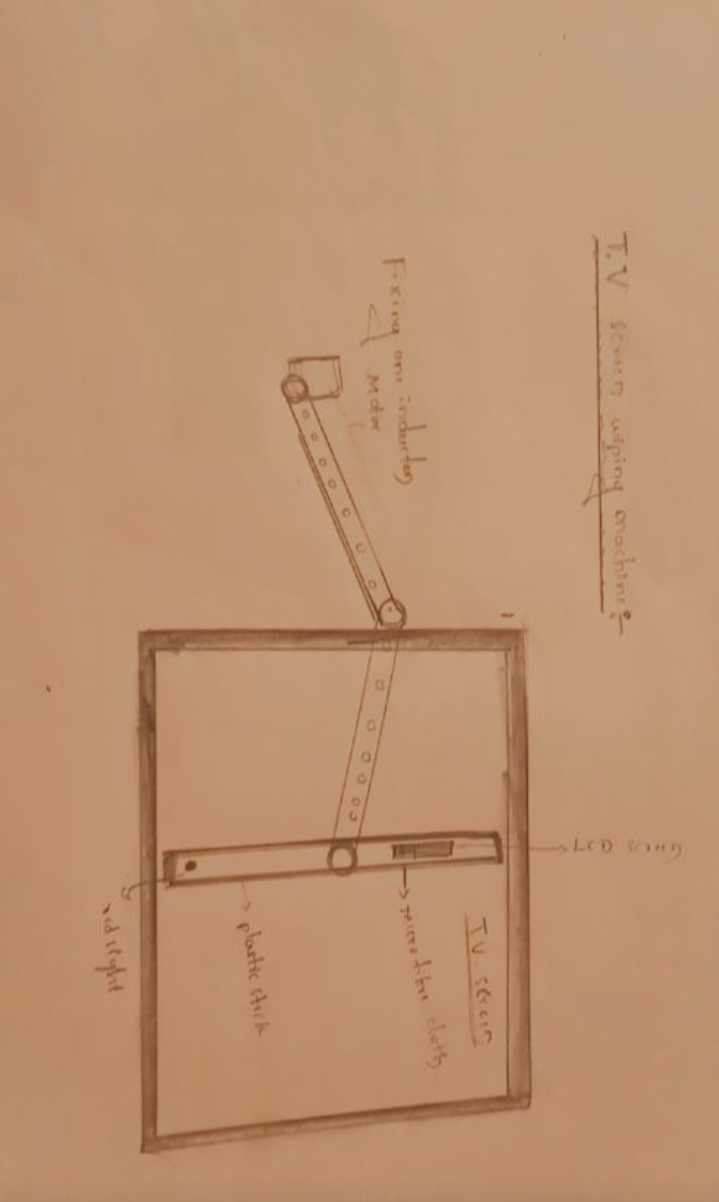 T.V screen wiping machine:-
Fixing one inductory
Motor
LCD screen
TV screen
microfibre cloth
plastic stick
red light